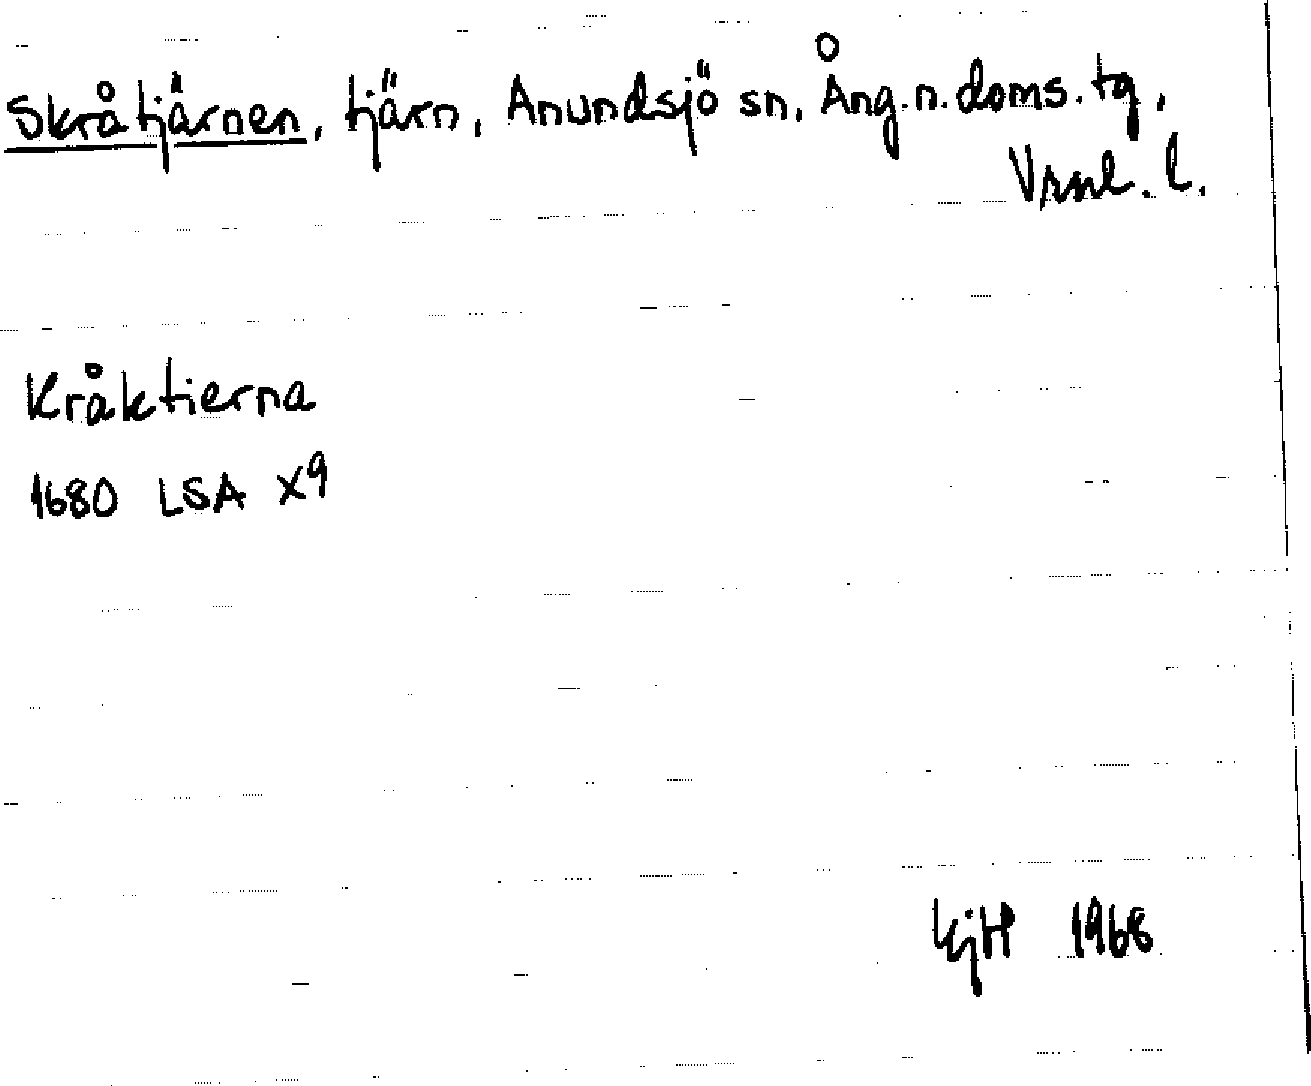 Skråtjärnen, tjärn, Anundsjö sn, Ång.n.doms.tg,
Vrnl. l.
Kråktierna
1680 LSA X9
KjH 1968